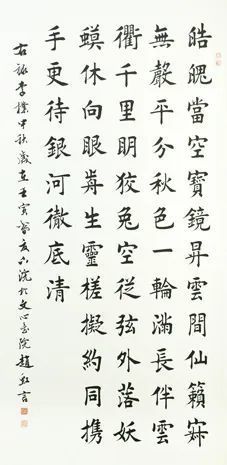 皓魄當空寶鏡昇雲間仙籟寂
無聲平分秋色一輪滿長伴雲
衢千里眀狡兔空從弦外落妖
蟆休向眼歬生靈槎擬約同携
手更待銀河徹底清
右録李樸中秋歲在壬寅於文心書院趙言